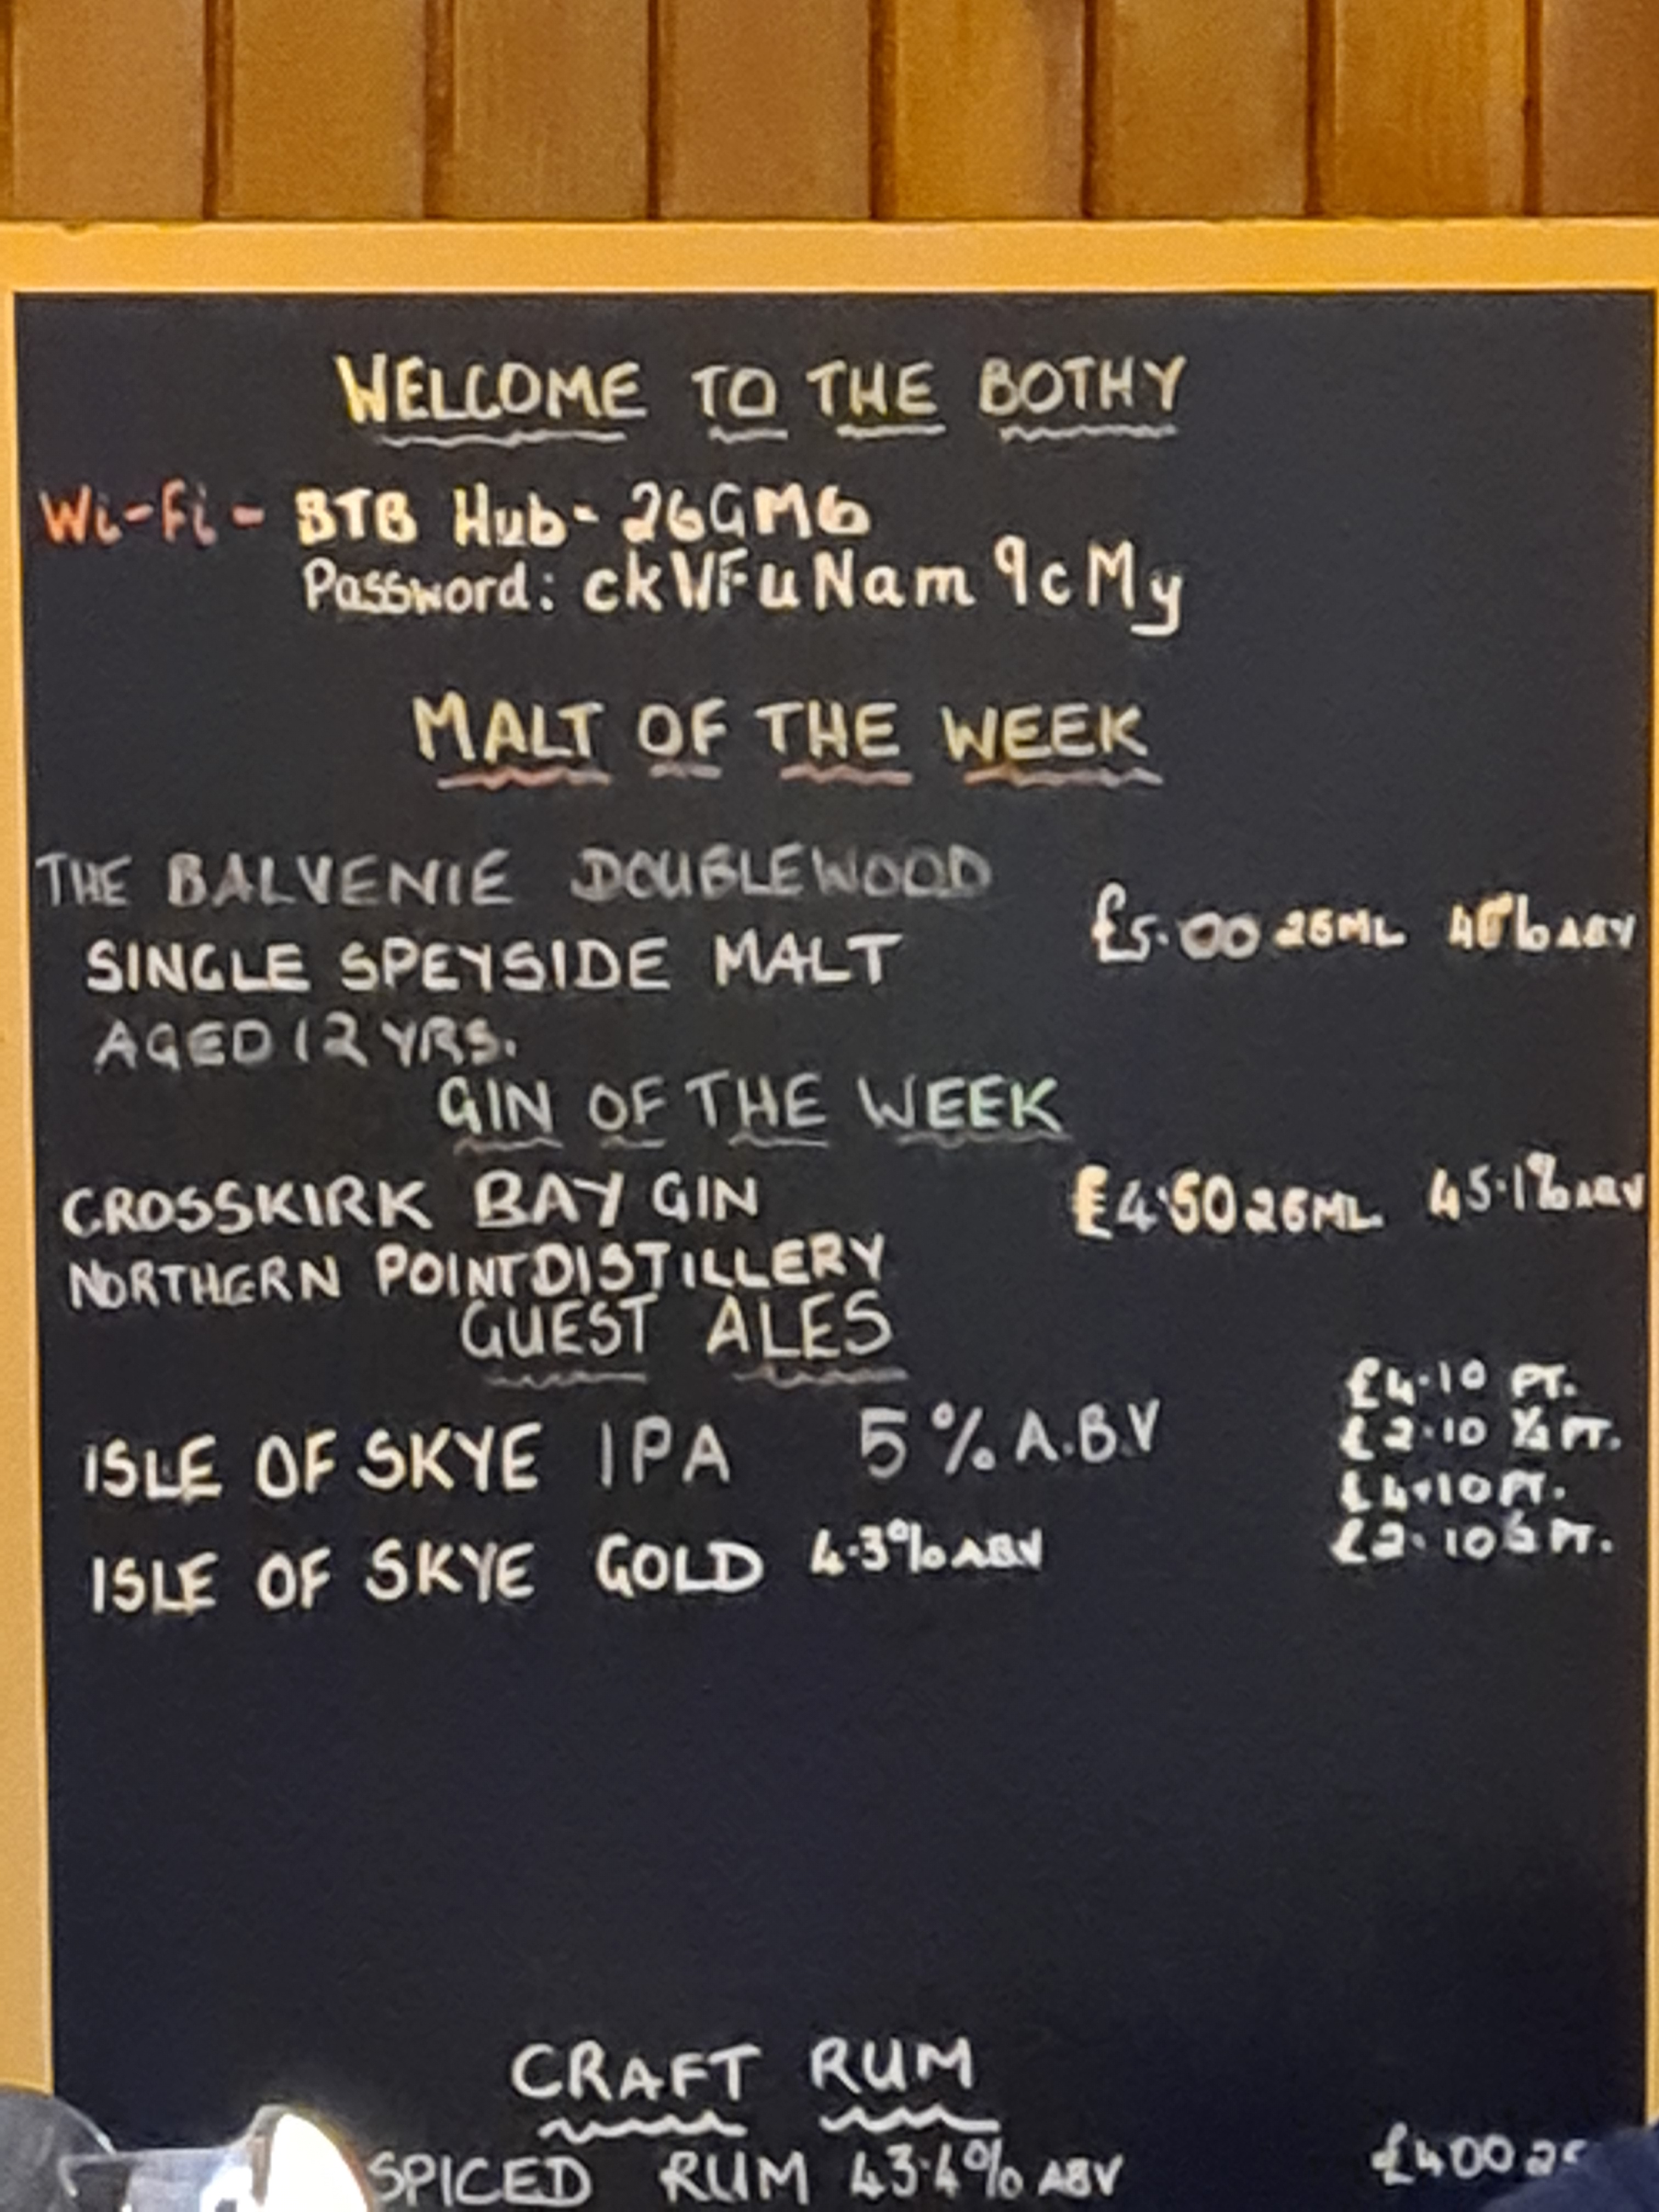 WELCOME TO THE BOTHY
Wi-Fi - BTB Hub- 26GM6
Password: ckWFuNam9cMy
MALT OF THE WEEK
THE BALVENIE DOUBLEWOOD
SINGLE SPEYSIDE MALT £5.00 25ML 40% ABV
AGED 12 YRS.
GIN OF THE WEEK
CROSSKIRK BAY GIN £4.50 25ML 45.1% ABV
NORTHERN POINT DISTILLERY
GUEST ALES
£4.10 PT.
ISLE OF SKYE IPA 5% A.B.V £2.10 ½ PT.
£4.10 PT.
ISLE OF SKYE GOLD 4.3% ABV £2.10 ½ PT.
CRAFT RUM
SPICED RUM 43.4% ABV £4.00 25